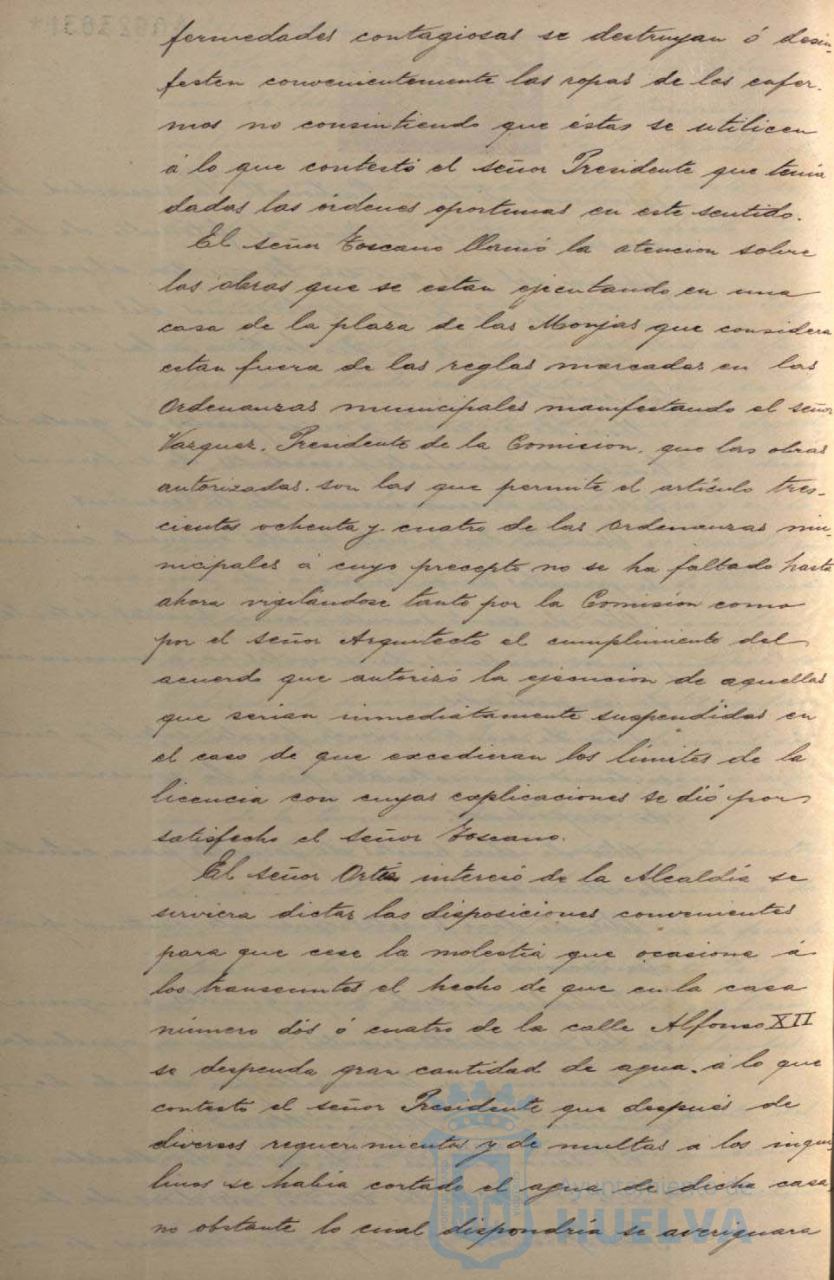 fermedades contagiosas se destruyan ó desin-
festen convenientemente las ropas de los enfer-
mos no consintiendo que éstas se utilicen
á lo que contestó el señor Presidente que tenia
dadas las órdenes oportunas en este sentido.
El señor Toscano llamó la atencion sobre
las obras que se estan ejecutando en una
casa de la plaza de las Monjas que considera
estan fuera de las reglas marcadas en las
Ordenanzas municipales manifestando el señor
Vazquez, Presidente de la Comision, que las obras
autorizadas son las que permite el artículo tres-
cientos ochenta y cuatro de las Ordenanzas mu-
nicipales á cuyo precepto no se ha faltado hasta
ahora vigilándose tanto por la Comisión como
por el señor Arquitecto el cumplimiento del
acuerdo que autorizó la ejecucion de aquellas
que serian inmediatamente suspendidas en
el caso de que excedieran los límites de la
licencia con cuyas explicaciones se dió por
satisfecho el señor Toscano.
El señor Ortiz interesó de la Alcaldía se
sirviera dictar las disposiciones convenientes
para que cese la molestia que ocasiona á
los transeuntes el hecho de que en la casa
número dós ó cuatro de la calle Alfonso XII
se despenda gran cantidad de agua, á lo que
contestó el señor Presidente que después de
diversos requerimientos y de multas a los inqui
linos se habia cortado el agua de dicha casa,
no obstante lo cual dispondría se averiguara
Ayuntamiento de
HUELVA